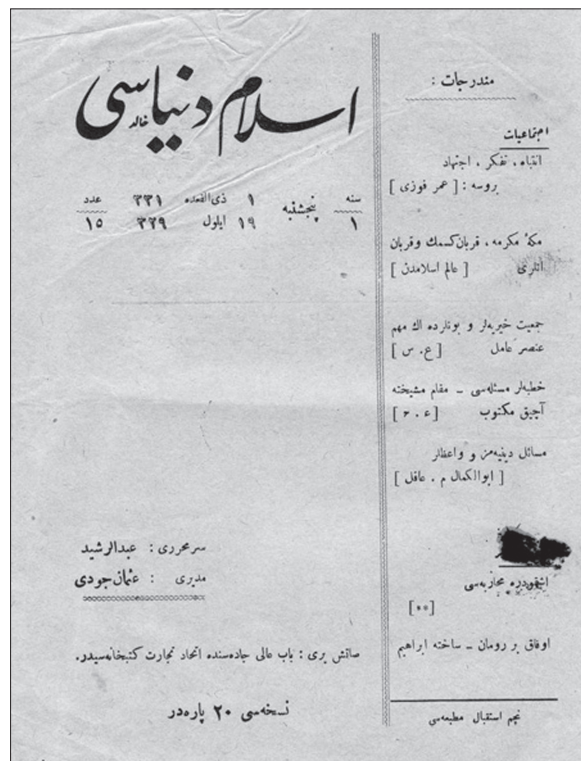 اسلام دنیاسی
خالد
سنه
۱
پنجشنبه
۱ ذی القعده ۳۳۱
۱۹ ایلول ۳۲۹
عدد
۱۵
سرمحرری : عبدالرشید
مدیری : عثمان جودی
صاتش یری : باب عالی جاده‌سنده اتحاد تجارت کتبخانه‌سیدر.
نسخه‌سی ۲۰ پاره‌در
مندرجات :
اجتماعیات
انتباه ، تفکر ، اجتهاد
بروسه : [ عمر فوزی ]
مكۀ مکرمه ، قربان کسمك وقربان
اتلری [ عالم اسلامدن ]
جمعیت خیریه‌لر و بونلرده اك مهم
عنصر عامل [ ع . س ]
خطبه‌لر مسئله‌سی - مقام مشیخته
آچیق مکتوب [ ع . م ]
مسائل دینیه‌مز و واعظلر
[ ابوالکمال م . عاقل ]
اشقودره محاربه‌سی
[**]
اوفاق بر رومان - ساخته ابراهیم
نجم استقبال مطبعه‌سی